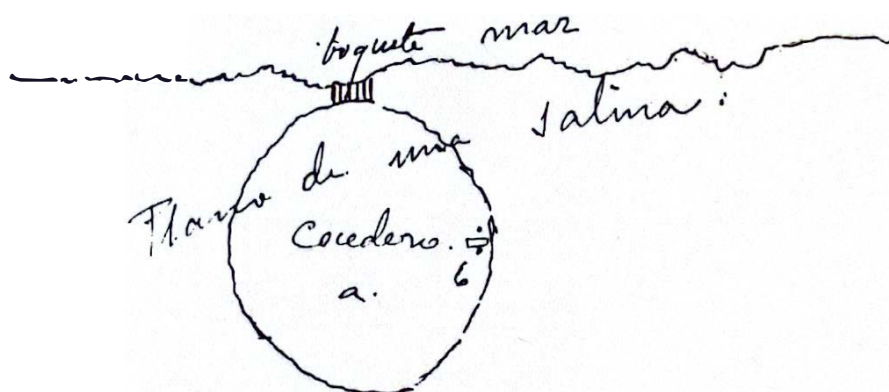 boquete mar
Plano de una Salina:
Cocedero.
6
a.